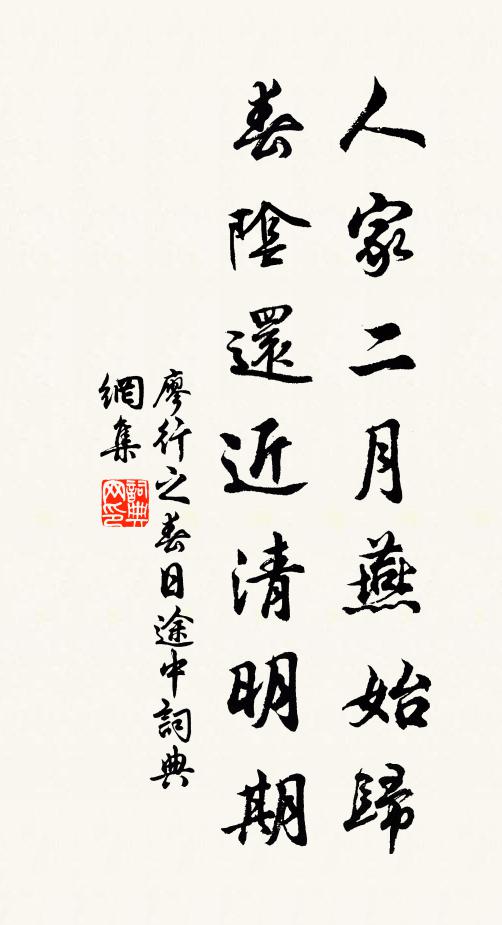 人家二月燕始歸
春陰還近清明期
廖行之春日途中詞典
網集
詞典網印